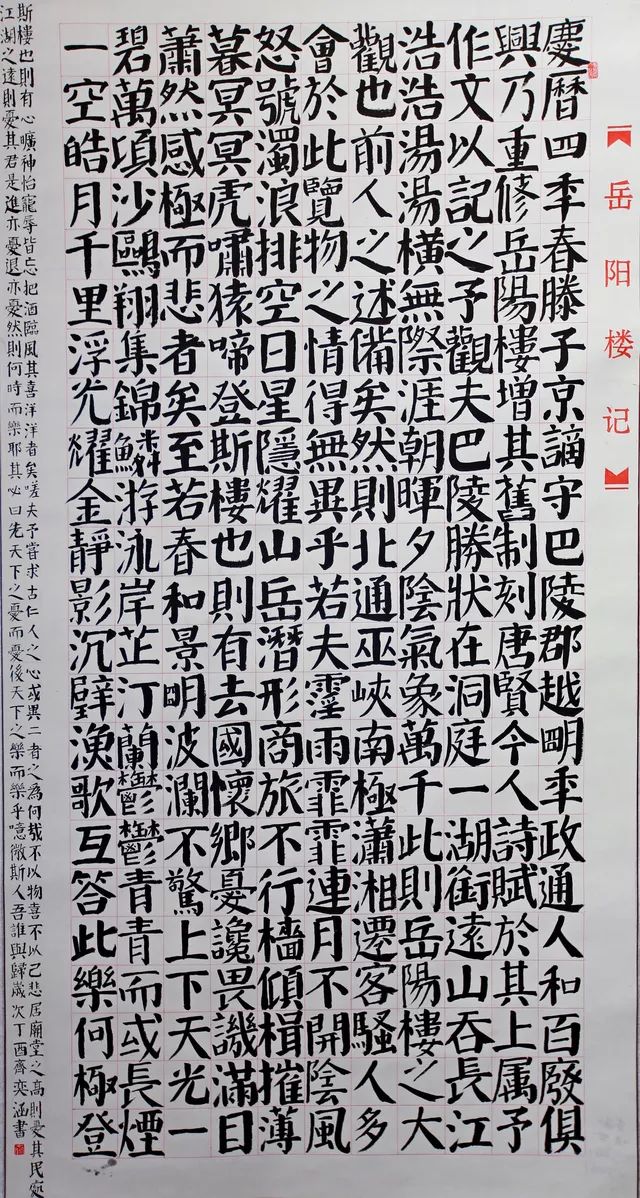 【岳阳楼记】
慶曆四年春滕子京謫守巴陵郡越明年政通人和百廢俱
興乃重修岳陽樓增其舊制刻唐賢今人詩賦於其上属予
作文以記之予觀夫巴陵勝狀在洞庭一湖銜遠山吞長江
浩浩湯湯橫無際涯朝暉夕陰氣象萬千此則岳陽樓之大
觀也前人之述備矣然則北通巫峽南極瀟湘遷客騷人多
會於此覽物之情得無異乎若夫霪雨霏霏連月不開陰風
怒號濁浪排空日星隱耀山岳潛形商旅不行檣傾楫摧薄
暮冥冥虎嘯猿啼登斯樓也則有去國懷鄉憂讒畏譏滿目
蕭然感極而悲者矣至若春和景明波瀾不驚上下天光一
碧萬頃沙鷗翔集錦鱗游泳岸芷汀蘭鬱鬱青青而或長煙
一空皓月千里浮光耀金靜影沉璧漁歌互答此樂何極登
斯樓也則有心曠神怡寵辱皆忘把酒臨風其喜洋洋者矣嗟夫予嘗求古仁人之心或異二者之為何哉不以物喜不以己悲居廟堂之高則憂其民處
江湖之遠則憂其君是進亦憂退亦憂然則何時而樂耶其必曰先天下之憂而憂後天下之樂而樂乎噫微斯人吾誰與歸歲次丁酉齊奕涵書